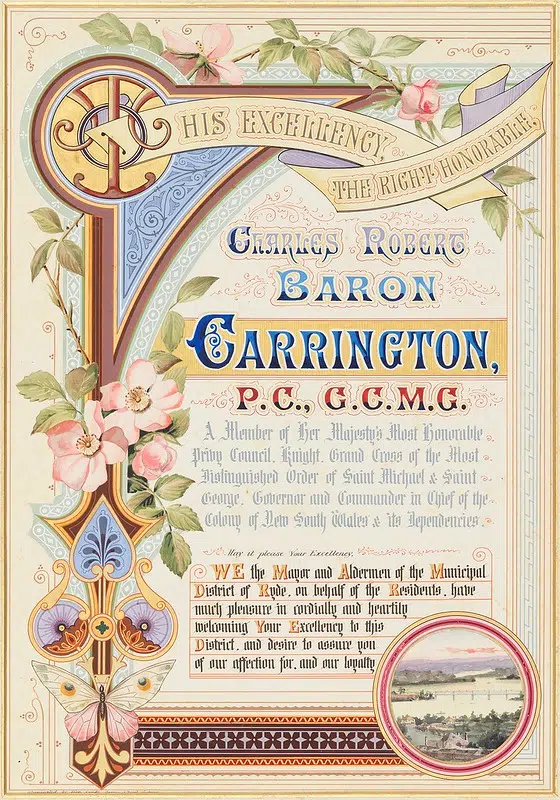 TO
HIS EXCELLENCY,
THE RIGHT HONORABLE,
CHARLES ROBERT
BARON
CARRINGTON,
P.C., G.C.M.G.
A Member of Her Majesty's Most Honorable
Privy Council, Knight Grand Cross of the Most
Distinguished Order of Saint Michael & Saint
George, Governor and Commander in Chief of the
Colony of New South Wales & its Dependencies.
May it please Your Excellency,
WE the Mayor and Aldermen of the Municipal
District of Ryde, on behalf of the Residents, have
much pleasure in cordially and heartily
welcoming Your Excellency to this
District, and desire to assure you
of our affection for, and our loyalty